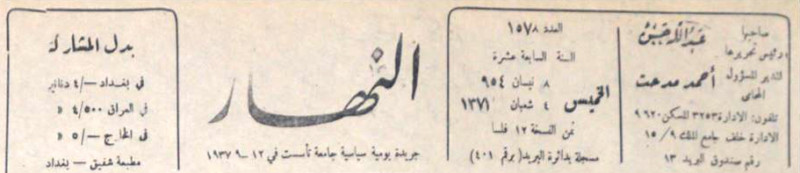 صاحبها
ورئيس تحريرها
عبدالله حسن
المدير المسؤول
المحامي
أحمد مدحت
تلفون: الادارة ٣٢٥٣ المسكن ٩٦٢٠
الادارة خلف جامع الملك ٩/ ١٥
رقم صندوق البريد ١٣
العدد ١٥٧٨
السنة السابعة عشرة
الخميس
٨ نيسان ٩٥٤
٤ شعبان ١٣٧١
ثمن النسخة ١٢ فلسا
مسجلة بدائرة البريد (برقم ٤٠١)
النهار
جريدة يومية سياسية جامعة تأسست في ١٢ -٩- ١٩٣٧
بدل المشاركة
في بغداد —/٤ دنانير
في العراق ٤/٥٠٠ «
في الخارج —/٥ «
مطبعة شفيق - بغداد